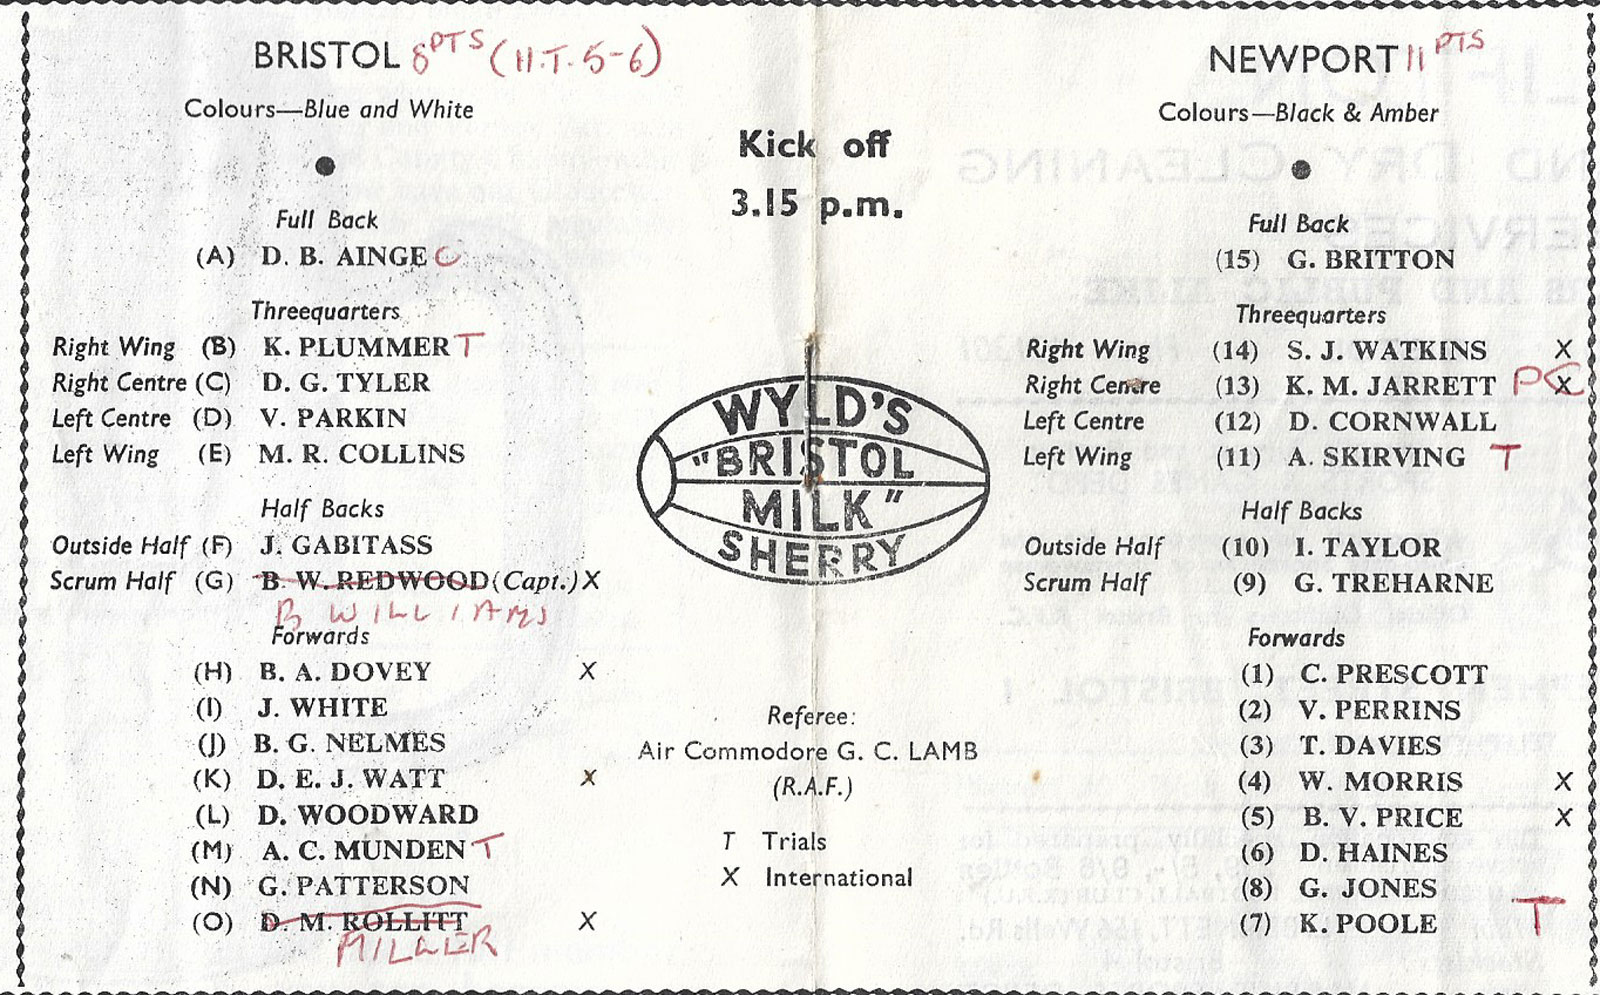 BRISTOL 8 PTS (H.T. 5-6)
Colours—Blue and White
Full Back
(A) D. B. AINGE C
Threequarters
Right Wing (B) K. PLUMMER T
Right Centre (C) D. G. TYLER
Left Centre (D) V. PARKIN
Left Wing (E) M. R. COLLINS
Half Backs
Outside Half (F) J. GABITASS
Scrum Half (G) B. W. REDWOOD (Capt.) X
B WILLIAMS
Forwards
(H) B. A. DOVEY X
(I) J. WHITE
(J) B. G. NELMES
(K) D. E. J. WATT X
(L) D. WOODWARD
(M) A. C. MUNDEN T
(N) G. PATTERSON
(O) D. M. ROLLITT X
MILLER
Kick off
3.15 p.m.
WYLD'S
"BRISTOL
MILK"
SHERRY
Referee:
Air Commodore G. C. LAMB
(R.A.F.)
T Trials
X International
NEWPORT 11 PTS
Colours—Black & Amber
Full Back
(15) G. BRITTON
Threequarters
Right Wing (14) S. J. WATKINS X
Right Centre (13) K. M. JARRETT PC X
Left Centre (12) D. CORNWALL
Left Wing (11) A. SKIRVING T
Half Backs
Outside Half (10) I. TAYLOR
Scrum Half (9) G. TREHARNE
Forwards
(1) C. PRESCOTT
(2) V. PERRINS
(3) T. DAVIES
(4) W. MORRIS X
(5) B. V. PRICE X
(6) D. HAINES
(8) G. JONES
(7) K. POOLE T